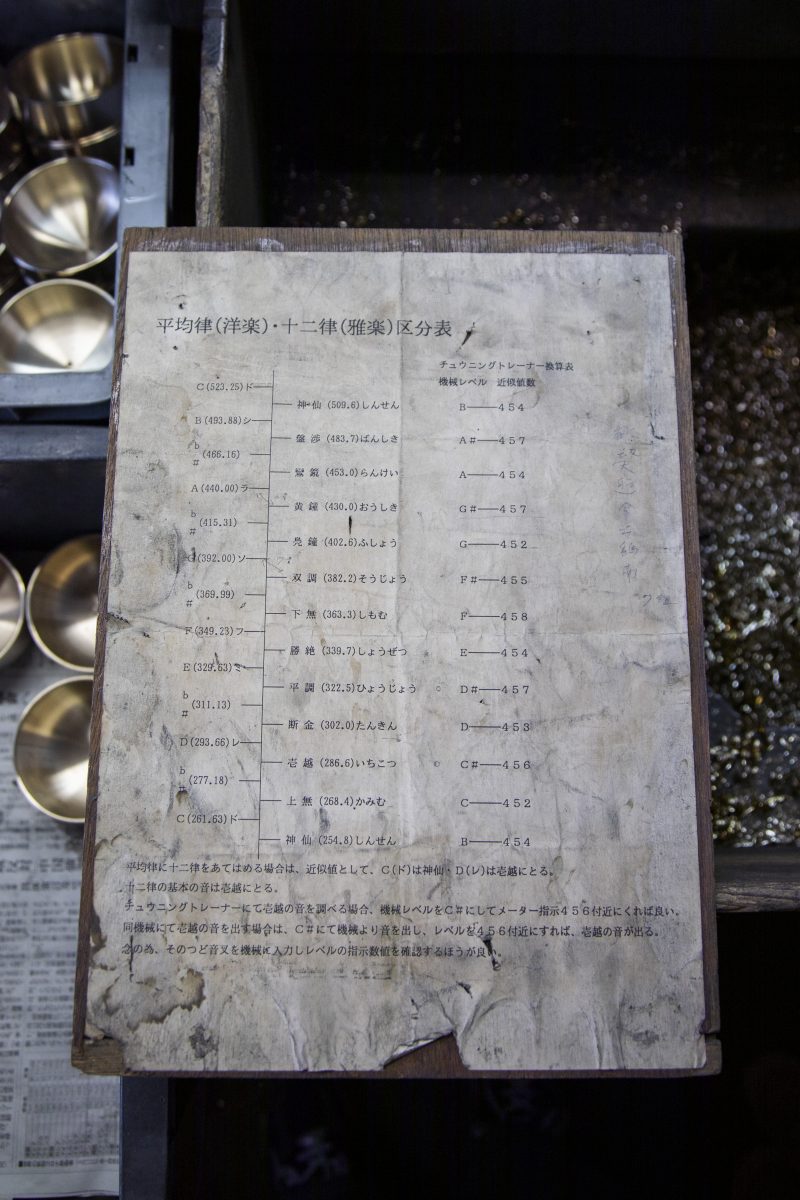 平均律(洋楽)・十二律(雅楽)区分表
チュウニングトレーナー換算表
機械レベル 近似値数
C(523.25)ド
神仙(509.6)しんせん B――454
B(493.88)シ
盤渉(483.7)ばんしき A#――457
b
# (466.16)
鸞鏡(453.0)らんけい A――454
A(440.00)ラ
黄鐘(430.0)おうしき G#――457
b
# (415.31)
鳧鐘(402.6)ふしょう G――452
G(392.00)ソ
双調(382.2)そうじょう F#――455
b
# (369.99)
下無(363.3)しもむ F――458
F(349.23)フ
勝絶(339.7)しょうぜつ E――454
E(329.63)ミ
平調(322.5)ひょうじょう ○ D#――457
b
# (311.13)
断金(302.0)たんきん D――453
D(293.66)レ
壱越(286.6)いちこつ ○ C#――456
b
# (277.18)
上無(268.4)かみむ C――452
C(261.63)ド
神仙(254.8)しんせん B――454
平均律に十二律をあてはめる場合は、近似値として、C(ド)は神仙・D(レ)は壱越にとる。
十二律の基本の音は壱越にとる。
チュウニングトレーナーにて壱越の音を調べる場合、機械レベルをC#にしてメーター指示456付近にくれば良い。
同機械にて壱越の音を出す場合は、C#にて機械より音を出し、レベルを456付近にすれば、壱越の音が出る。
念の為、そのつど音叉を機械に入力しレベルの指示数値を確認するほうが良い。